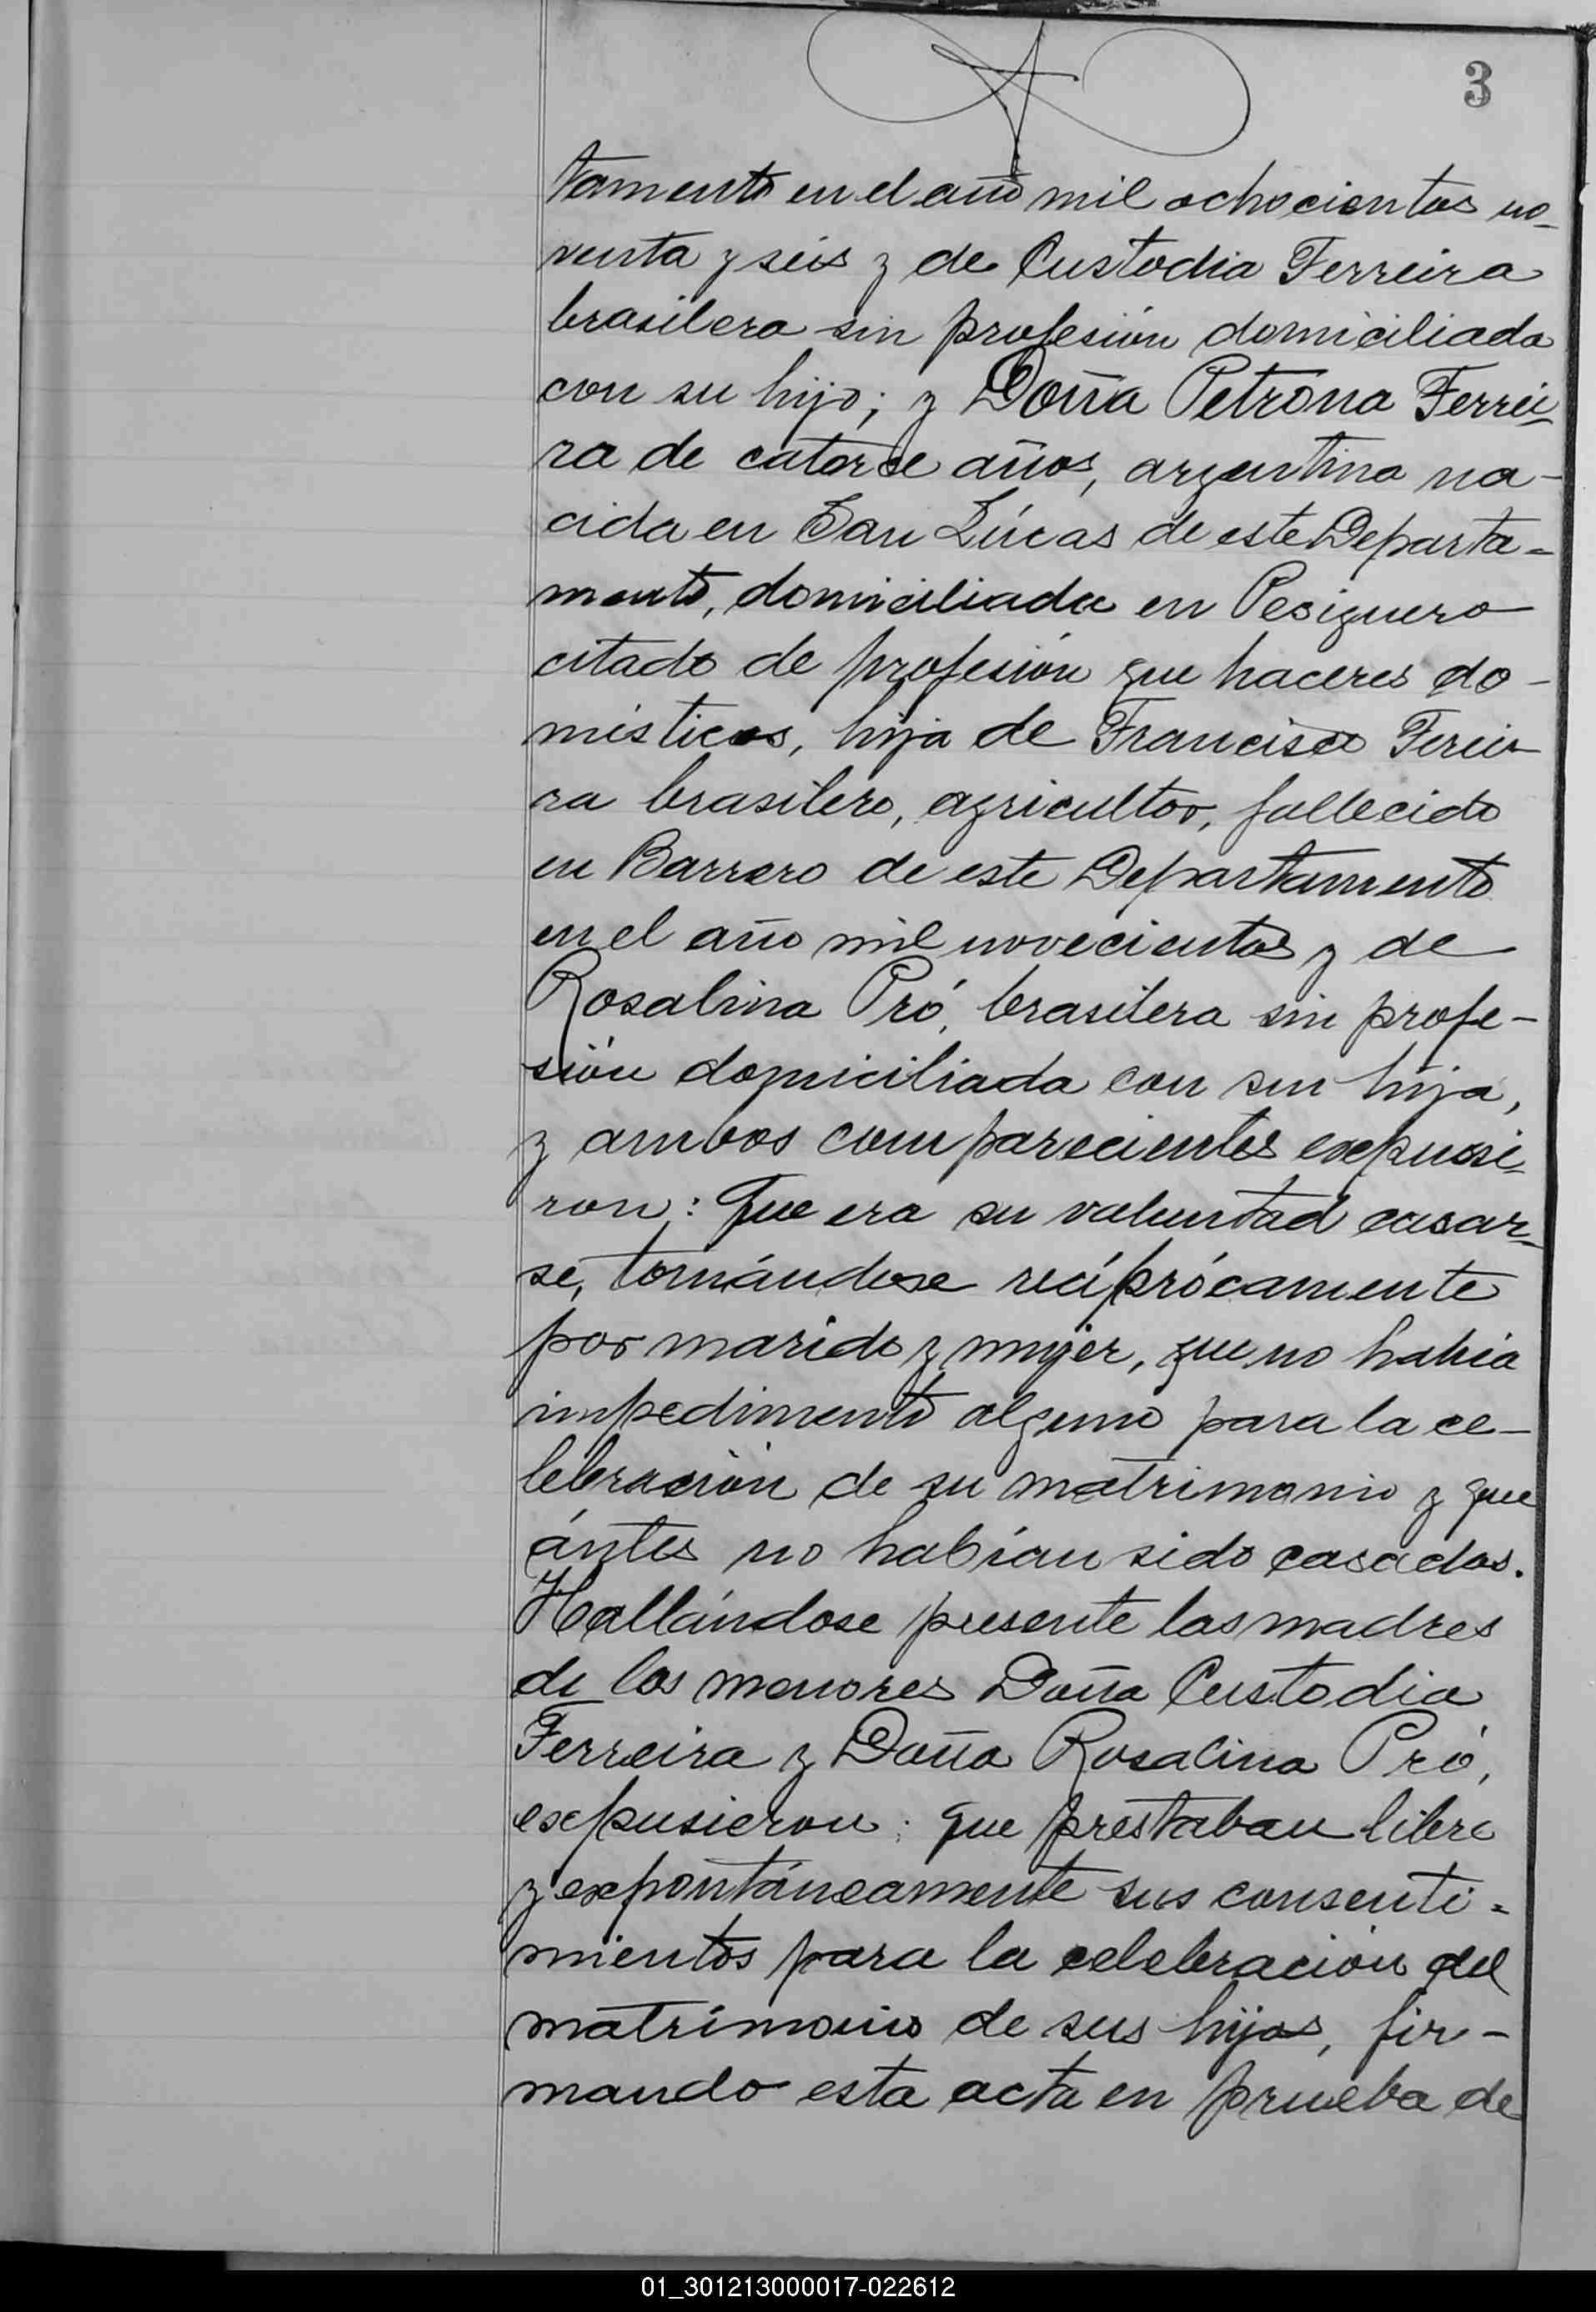 3
tamento en el año mil ochocientos no-
venta y seis y de Custodia Ferreira
brasilera sin profesión domiciliada
con su hijo; y Doña Petrona Ferrei-
ra de catorce años, argentina na-
cida en San Lúcas de este Departa-
mento, domiciliada en Pesiguero
citado de profesión que haceres do-
mésticos, hija de Francisco Ferei-
ra brasilero, agricultor, fallecido
en Barrero de este Departamento
en el año mil novecientos y de
Rosalina Pró, brasilera sin profe-
sión domiciliada con su hija,
y ambos comparecientes expusie-
ron: Que era su voluntad casar-
se, tomándose recíprócamente
por marido y mujer, que no había
impedimento alguno para la ce-
lebración de su matrimonio y que
ántes no habían sido casados.
Hallándose presente las madres
de los menores Doña Custodia
Ferreira y Doña Rosalina Pró,
expusieron: que prestaban libre
y expontáneamente sus consenti-
mientos para la celebración del
matrimonio de sus hijos, fir-
mando esta acta en prueba de
01_301213000017-022612